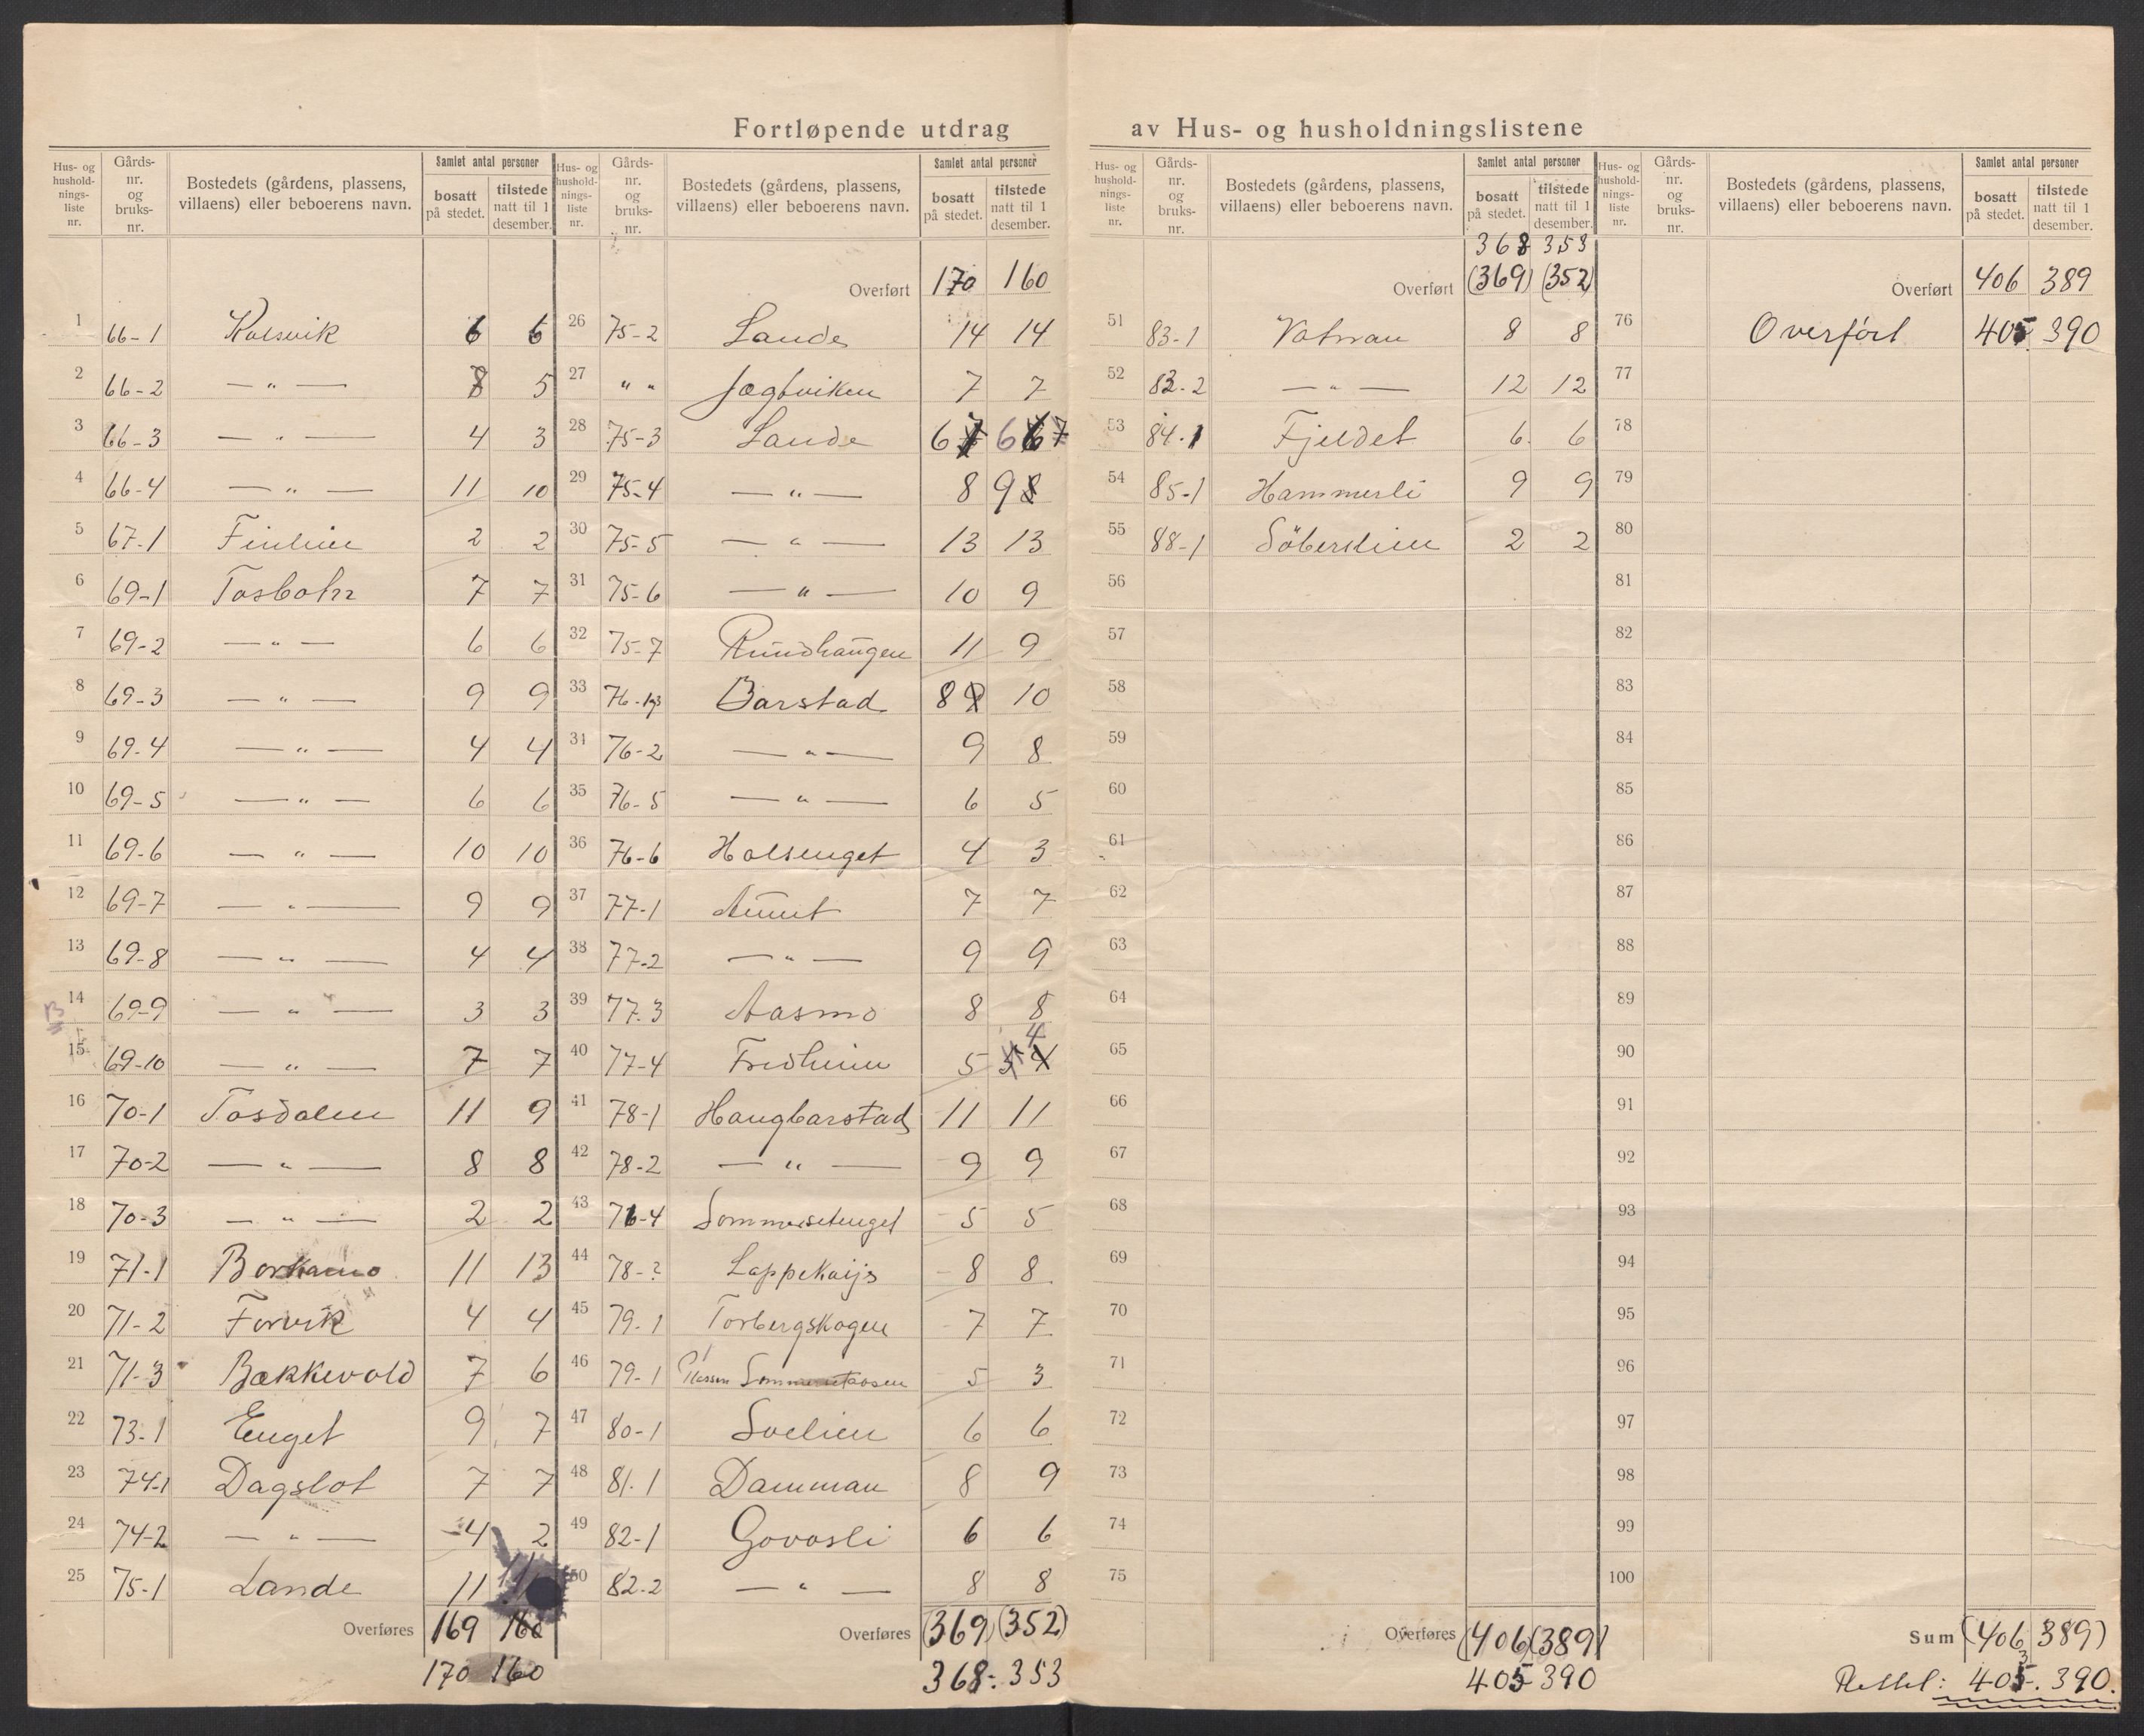 Fortløpende utdrag av Hus- og husholdningslistene
Hus- og husholdningsliste nr. | Gårds-nr. og bruks-nr. | Bostedets (gårdens, plassens, villaens) eller beboerens navn. | Samlet antal personer: bosatt på stedet. | tilstede natt til 1 desember.
1 66-1 Kolsvik 6 6
2 66-2 — " — 8 5
3 66-3 — " — 4 3
4 66-4 — " — 11 10
5 67-1 2 2
6 69-1 Tosbotn 7 7
7 69-2 — " — 6 6
8 69-3 — " — 9 9
9 69-4 — " — 4 4
10 69-5 — " — 6 6
11 69-6 — " — 10 10
12 69-7 — " — 9 9
13 69-8 — " — 4 4
14 69-9 — " — 3 3
15 69-10 — " — 7 7
16 70-1 Tosdalen 11 9
17 70-2 — " — 8 8
18 70-3 — " — 2 2
19 71-1 Borkamo 11 13
20 71-2 Forvik 4 4
21 71-3 Bækkevold 7 6
22 73-1 Enget 9 7
23 74-1 Dagslot 7 7
24 74-2 — " — 4 2
25 75-1 Lande 11 11
Overføres 169 160
170 160
Hus- og husholdningsliste nr. | Gårds-nr. og bruks-nr. | Bostedets (gårdens, plassens, villaens) eller beboerens navn. | Samlet antal personer: bosatt på stedet. | tilstede natt til 1 desember.
Overført 170 160
26 75-2 Lande 14 14
27 " " Jægtviken 7 7
28 75-3 Lande 6 7 6 6 7
29 75-4 — " — 8 9 8
30 75-5 — " — 13 13
31 75-6 — " — 10 9
32 75-7 Rundhaugen 11 9
33 Barstad 8 9 10
34 76-2 — " — 9 8
35 76-5 — " — 6 5
36 76-6 Holsenget 4 3
37 77-1 Aunet 7 7
38 77-2 — " — 9 9
39 77.3 Aasmo 8 8
40 77-4 Fredheim 5 5 4 4
41 78-1 Haugbarstad 11 11
42 78-2 — " — 9 9
43 76-4 Sommersetenget 5 5
44 78-? 8 8
45 79.1 Torbergskogen 7 7
46 79-1 Plassen 5 3
47 80-1 Svelien 6 6
48 81.1 Damman 8 9
49 82-1 Govasli 6 6
50 82-2 — " — 8 8
Overføres (369) (352)
368 - 353
Hus- og husholdningsliste nr. | Gårds-nr. og bruks-nr. | Bostedets (gårdens, plassens, villaens) eller beboerens navn. | Samlet antal personer: bosatt på stedet. | tilstede natt til 1 desember.
368 353
Overført (369) (352)
51 83-1 Vatnan 8 8
52 83-2 — " — 12 12
53 84-1 Fjeldet 6 6
54 85-1 Hammerli 9 9
55 88-1 2 2
56
57
58
59
60
61
62
63
64
65
66
67
68
69
70
71
72
73
74
75
Overføres (406) (389)
405 390
Hus- og husholdningsliste nr. | Gårds-nr. og bruks-nr. | Bostedets (gårdens, plassens, villaens) eller beboerens navn. | Samlet antal personer: bosatt på stedet. | tilstede natt til 1 desember.
Overført 406 389
76 Overført 405 390
77
78
79
80
81
82
83
84
85
86
87
88
89
90
91
92
93
94
95
96
97
98
99
100
Sum (406 389)
Rettel: 405. 390.